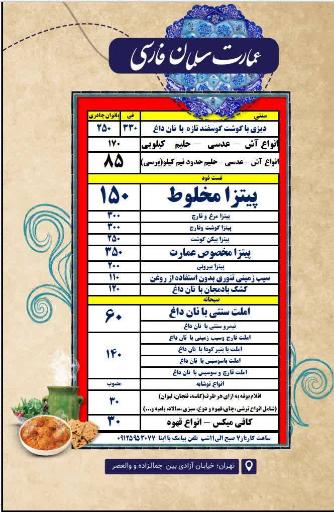 عمارت سلمان فارسی
سنتی فی بانوان چادری
دیزی با گوشت گوسفند تازه با نان داغ ۳۳۰ ۲۵۰
انواع آش - عدسی - حلیم کیلویی ۱۷۰
انواع آش - عدسی - حلیم حدود نیم کیلو (پرسی) ۸۵
فست فود
پیتزا مخلوط ۱۵۰
پیتزا مرغ و قارچ ۳۰۰
پیتزا گوشت وقارچ ۳۰۰
پیتزا بیکن گوشت ۲۵۰
پیتزا مخصوص عمارت ۳۵۰
پیتزا پپرونی ۲۰۰
سیب زمینی تنوری بدون استفاده از روغن ۱۱۰
کشک بادمجان با نان داغ ۱۲۰
صبحانه
املت سنتی با نان داغ ۶۰
نیمرو سنتی با نان داغ
املت قارچ وسیب زمینی با نان داغ
املت با پنیر گودا با نان داغ ۱۴۰
املت باسوسیس با نان داغ
املت قارچ و سوسیس با نان داغ
انواع نوشابه مصوب
اقلام بوفه به ازای هر ظرف (کاسه، فنجان، لیوان) ۳۰
(شامل انواع ترشی، چای، قهوه و دوغ، سبزی، سالاد، بامیه و...)
کافی میکس - انواع قهوه ۳۰
ساعت کار از ۷ صبح الی ۱۱ شب تلفن پیامک یا ایتا ۰۹۱۲۵۹۵۳۰۷۷
تهران: خیابان آزادی بین جمالزاده و والعصر